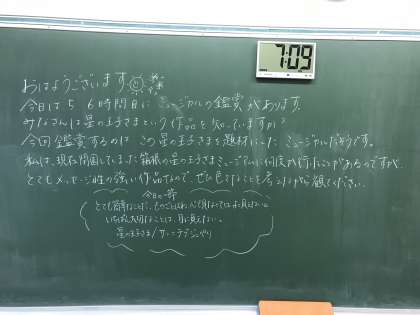 7:09
おはようございます。
今日は5、6時間目にミュージカルの鑑賞があります。
みなさんは星の王子さまという作品を知っていますか?
今回鑑賞するのは、この星の王子さまを題材にしたミュージカルだそうです。
私は、現在閉園してしまった箱根の星の王子さまミュージアムに何度か行ったことがあるのですが、
とてもメッセージ性の強い作品なので、ぜひ色々なことを考えながら観てください。
今日の一節
とても簡単なことだ。ものごとはね、心で見なくてはよく見えない。
いちばん大切なことは、目に見えない。
星の王子さま/サン=テグジュペリ